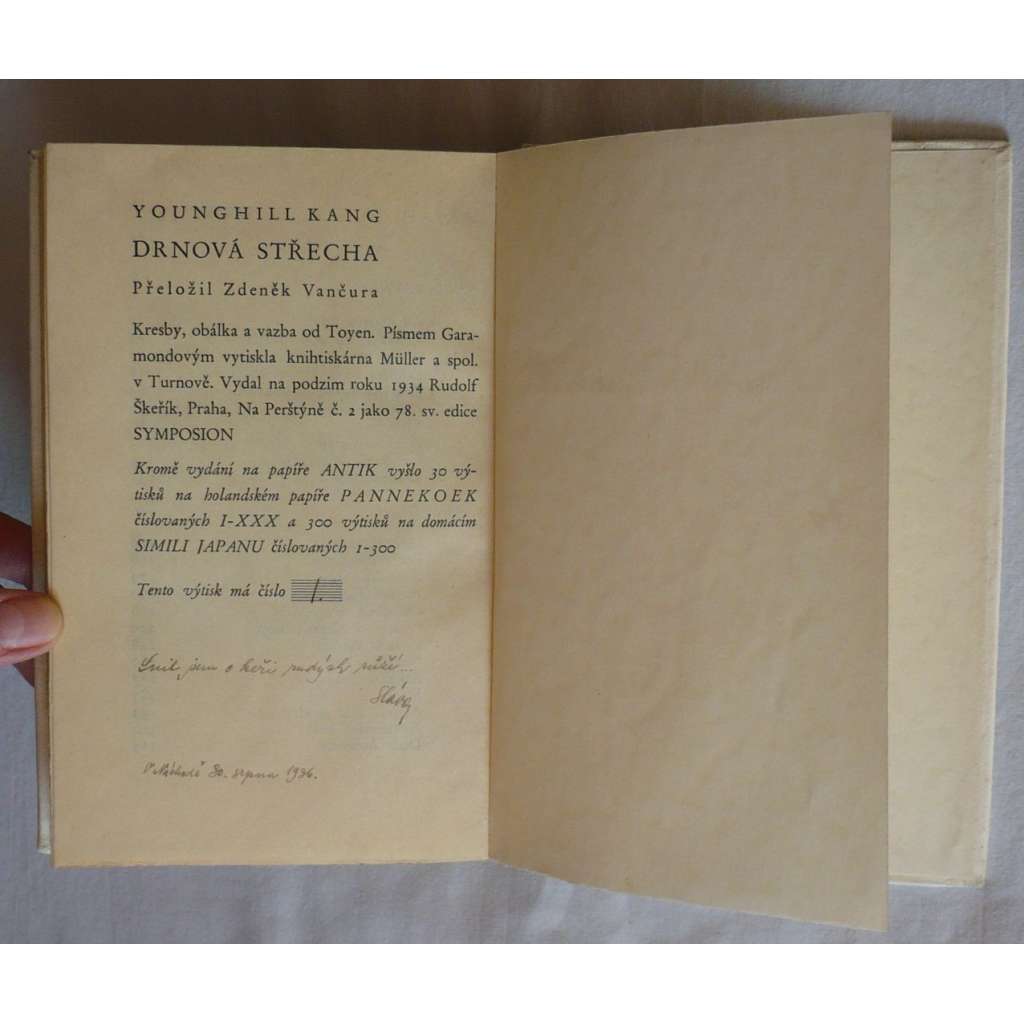 YOUNGHILL KANG
DRNOVÁ STŘECHA
Přeložil Zdeněk Vančura
Kresby, obálka a vazba od Toyen. Písmem Gara-
mondovým vytiskla knihtiskárna Müller a spol.
v Turnově. Vydal na podzim roku 1934 Rudolf
Škeřík, Praha, Na Perštýně č. 2 jako 78. sv. edice
SYMPOSION
Kromě vydání na papíře ANTIK vyšlo 30 vý-
tisků na holandském papíře PANNEKOEK
číslovaných I-XXX a 300 výtisků na domácím
SIMILI JAPANU číslovaných 1-300
Tento výtisk má číslo 1.
Snil jsem o keři rudých růží...
V Náchodě 30. srpna 1936.